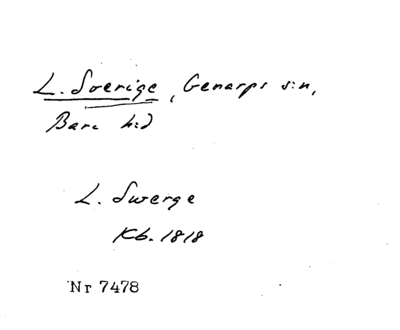 L. Sverige, Genarps s:n,
Bara hd
L. Swerge
Kb. 1818
Nr 7478